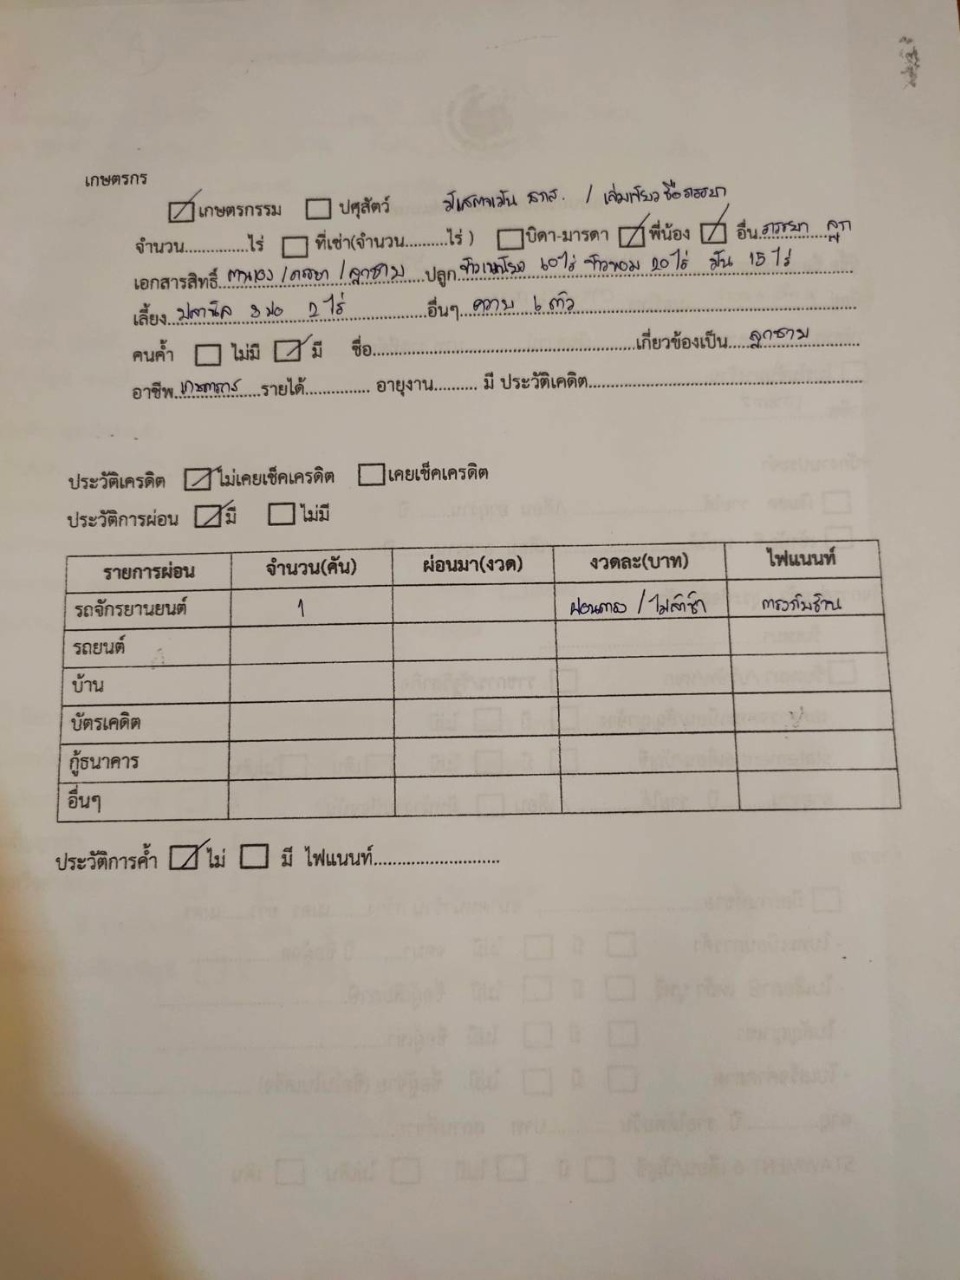 เกษตรกร
☑ เกษตรกรรม ☐ ปศุสัตว์ ธกส. / เล่มเขียวชื่อภรรยา
จำนวน..............ไร่ ☐ ที่เช่า(จำนวน.........ไร่ ) ☐ บิดา-มารดา ☑ พี่น้อง ☑ อื่น ภรรยา ลูก
เอกสารสิทธิ์ ตนเอง / ภรรยา / ลูกชาย ปลูก ข้าวเหนียว 60 ไร่ ข้าวหอม 20 ไร่ มัน 15 ไร่
เลี้ยง ปลานิล 3 บ่อ 2 ไร่ อื่นๆ ควาย 6 ตัว
คนค้ำ ☐ ไม่มี ☑ มี ชื่อ..............................เกี่ยวข้องเป็น ลูกชาย
อาชีพ เกษตรกร รายได้.............. อายุงาน.......... มี ประวัติเคดิต..............................
ประวัติเครดิต ☑ ไม่เคยเช็คเครดิต ☐ เคยเช็คเครดิต
ประวัติการผ่อน ☑ มี ☐ ไม่มี
รายการผ่อน จำนวน(คัน) ผ่อนมา(งวด) งวดละ(บาท) ไฟแนนท์
รถจักรยานยนต์ 1 ผ่อนตรง / ไม่ล่าช้า ตรงกับร้าน
รถยนต์
บ้าน
บัตรเคดิต
กู้ธนาคาร
อื่นๆ
ประวัติการค้ำ ☑ ไม่ ☐ มี ไฟแนนท์..........................